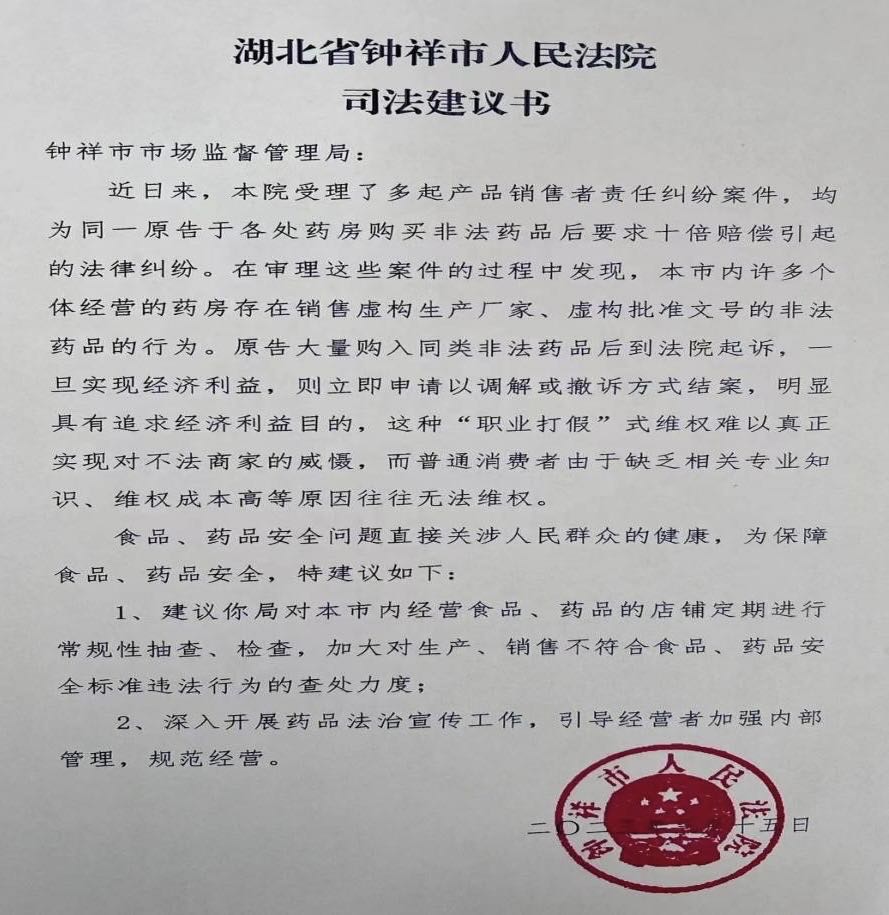 湖北省钟祥市人民法院
司法建议书
钟祥市市场监督管理局：
近日来，本院受理了多起产品销售者责任纠纷案件，均
为同一原告于各处药房购买非法药品后要求十倍赔偿引起
的法律纠纷。在审理这些案件的过程中发现，本市内许多个
体经营的药房存在销售虚构生产厂家、虚构批准文号的非法
药品的行为。原告大量购入同类非法药品后到法院起诉，一
旦实现经济利益，则立即申请以调解或撤诉方式结案，明显
具有追求经济利益目的，这种“职业打假”式维权难以真正
实现对不法商家的威慑，而普通消费者由于缺乏相关专业知
识、维权成本高等原因往往无法维权。
食品、药品安全问题直接关涉人民群众的健康，为保障
食品、药品安全，特建议如下：
1、建议你局对本市内经营食品、药品的店铺定期进行
常规性抽查、检查，加大对生产、销售不符合食品、药品安
全标准违法行为的查处力度；
2、深入开展药品法治宣传工作，引导经营者加强内部
管理，规范经营。
钟祥市人民法院
二〇二 十五日